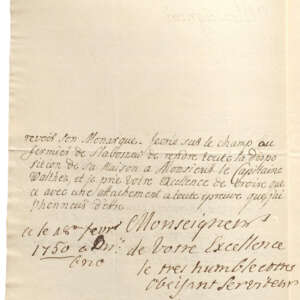 revoir son Monarque. J'ecris sur le champ au
fermier de de rendre toute la dispo
sition de sa Maison a Monsieur le Capitaine
Walther, et je prie Votre Excellence de croire que
c'e avec une attachement a toute epreuve que j'ai
l'honneur d'etre
Monseigneur
a le 18me fevr
1750 de Votre Excellence
le tres humble et tres
obeissant Serviteur